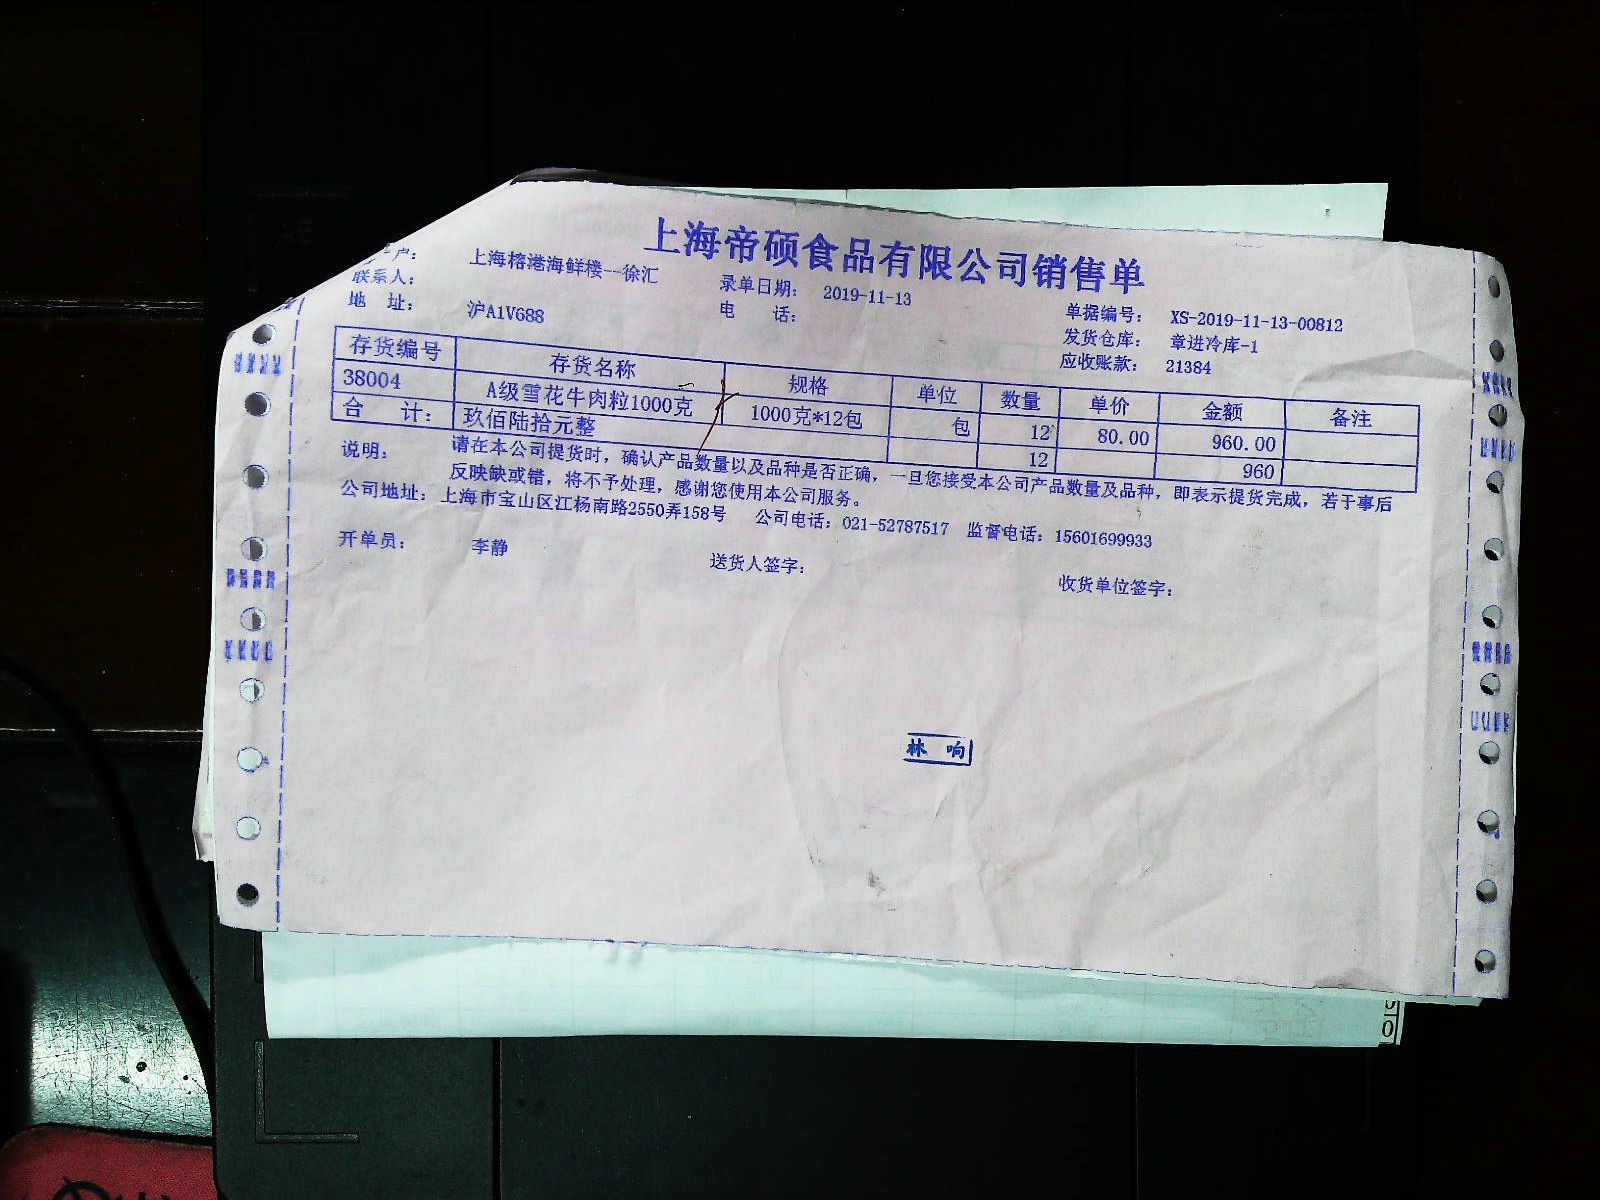 上海帝硕食品有限公司销售单
户: 上海榕港海鲜楼--徐汇 录单日期: 2019-11-13 单据编号: XS-2019-11-13-00812
联系人: 电 话: 发货仓库: 章进冷库-1
地 址: 沪A1V688 应收账款: 21384
存货编号 存货名称 规格 单位 数量 单价 金额 备注
38004 A级雪花牛肉粒1000克 1000克*12包 包 12 80.00 960.00
合 计: 玖佰陆拾元整 12 960
说明: 请在本公司提货时，确认产品数量以及品种是否正确，一旦您接受本公司产品数量及品种，即表示提货完成，若于事后
反映缺或错，将不予处理，感谢您使用本公司服务。
公司地址: 上海市宝山区江杨南路2550弄158号 公司电话: 021-52787517 监督电话: 15601699933
开单员: 李静 送货人签字: 收货单位签字:
林 响